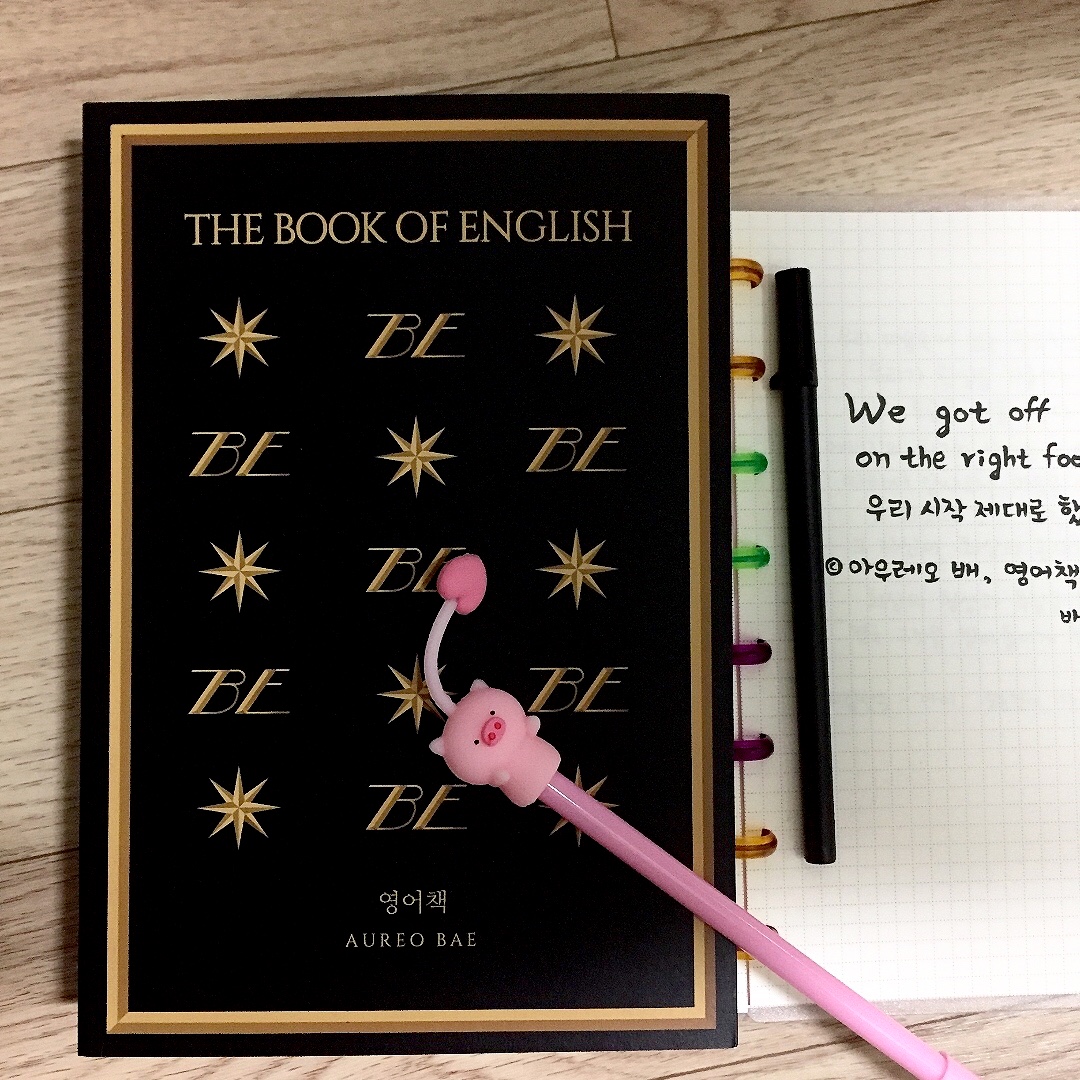 THE BOOK OF ENGLISH
BE
BE BE
BE
BE BE
BE
영어책
AUREO BAE
We got off
on the right
우리 시작 제대로
© 아우레오 배, 영어책